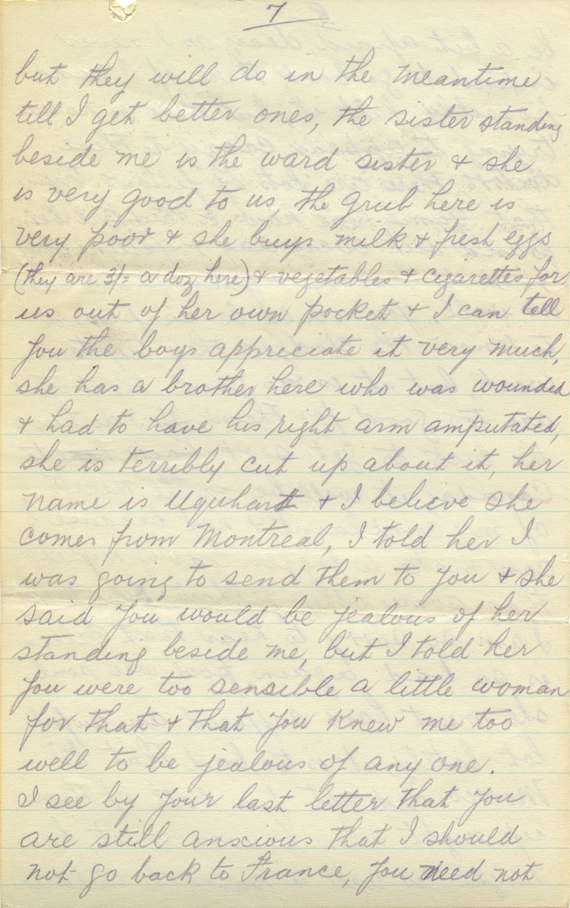 7
but they will do in the meantime
till I get better ones, the sister standing
beside me is the ward sister & she
is very good to us, the grub here is
very poor & she buys milk & fresh eggs
(they are 3/= a doz here) & vegetables & cigarettes for
us out of her own pocket & I can tell
you the boys appreciate it very much,
she has a brother here who was wounded
& had to have his right arm amputated,
she is terribly cut up about it, her
name is Uquhart & I believe she
comes from Montreal, I told her I
was going to send them to you & she
said you would be jealous of her
standing beside me, but I told her
you were too sensible a little woman
for that & that you knew me too
well to be jealous of any one.
I see by your last letter that you
are still anscious that I should
not go back to France, you need not